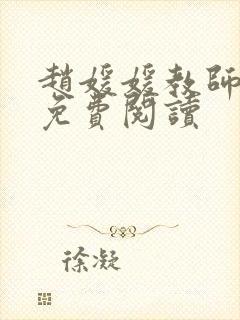 趙媛媛教師
免費閱讀
徐凝